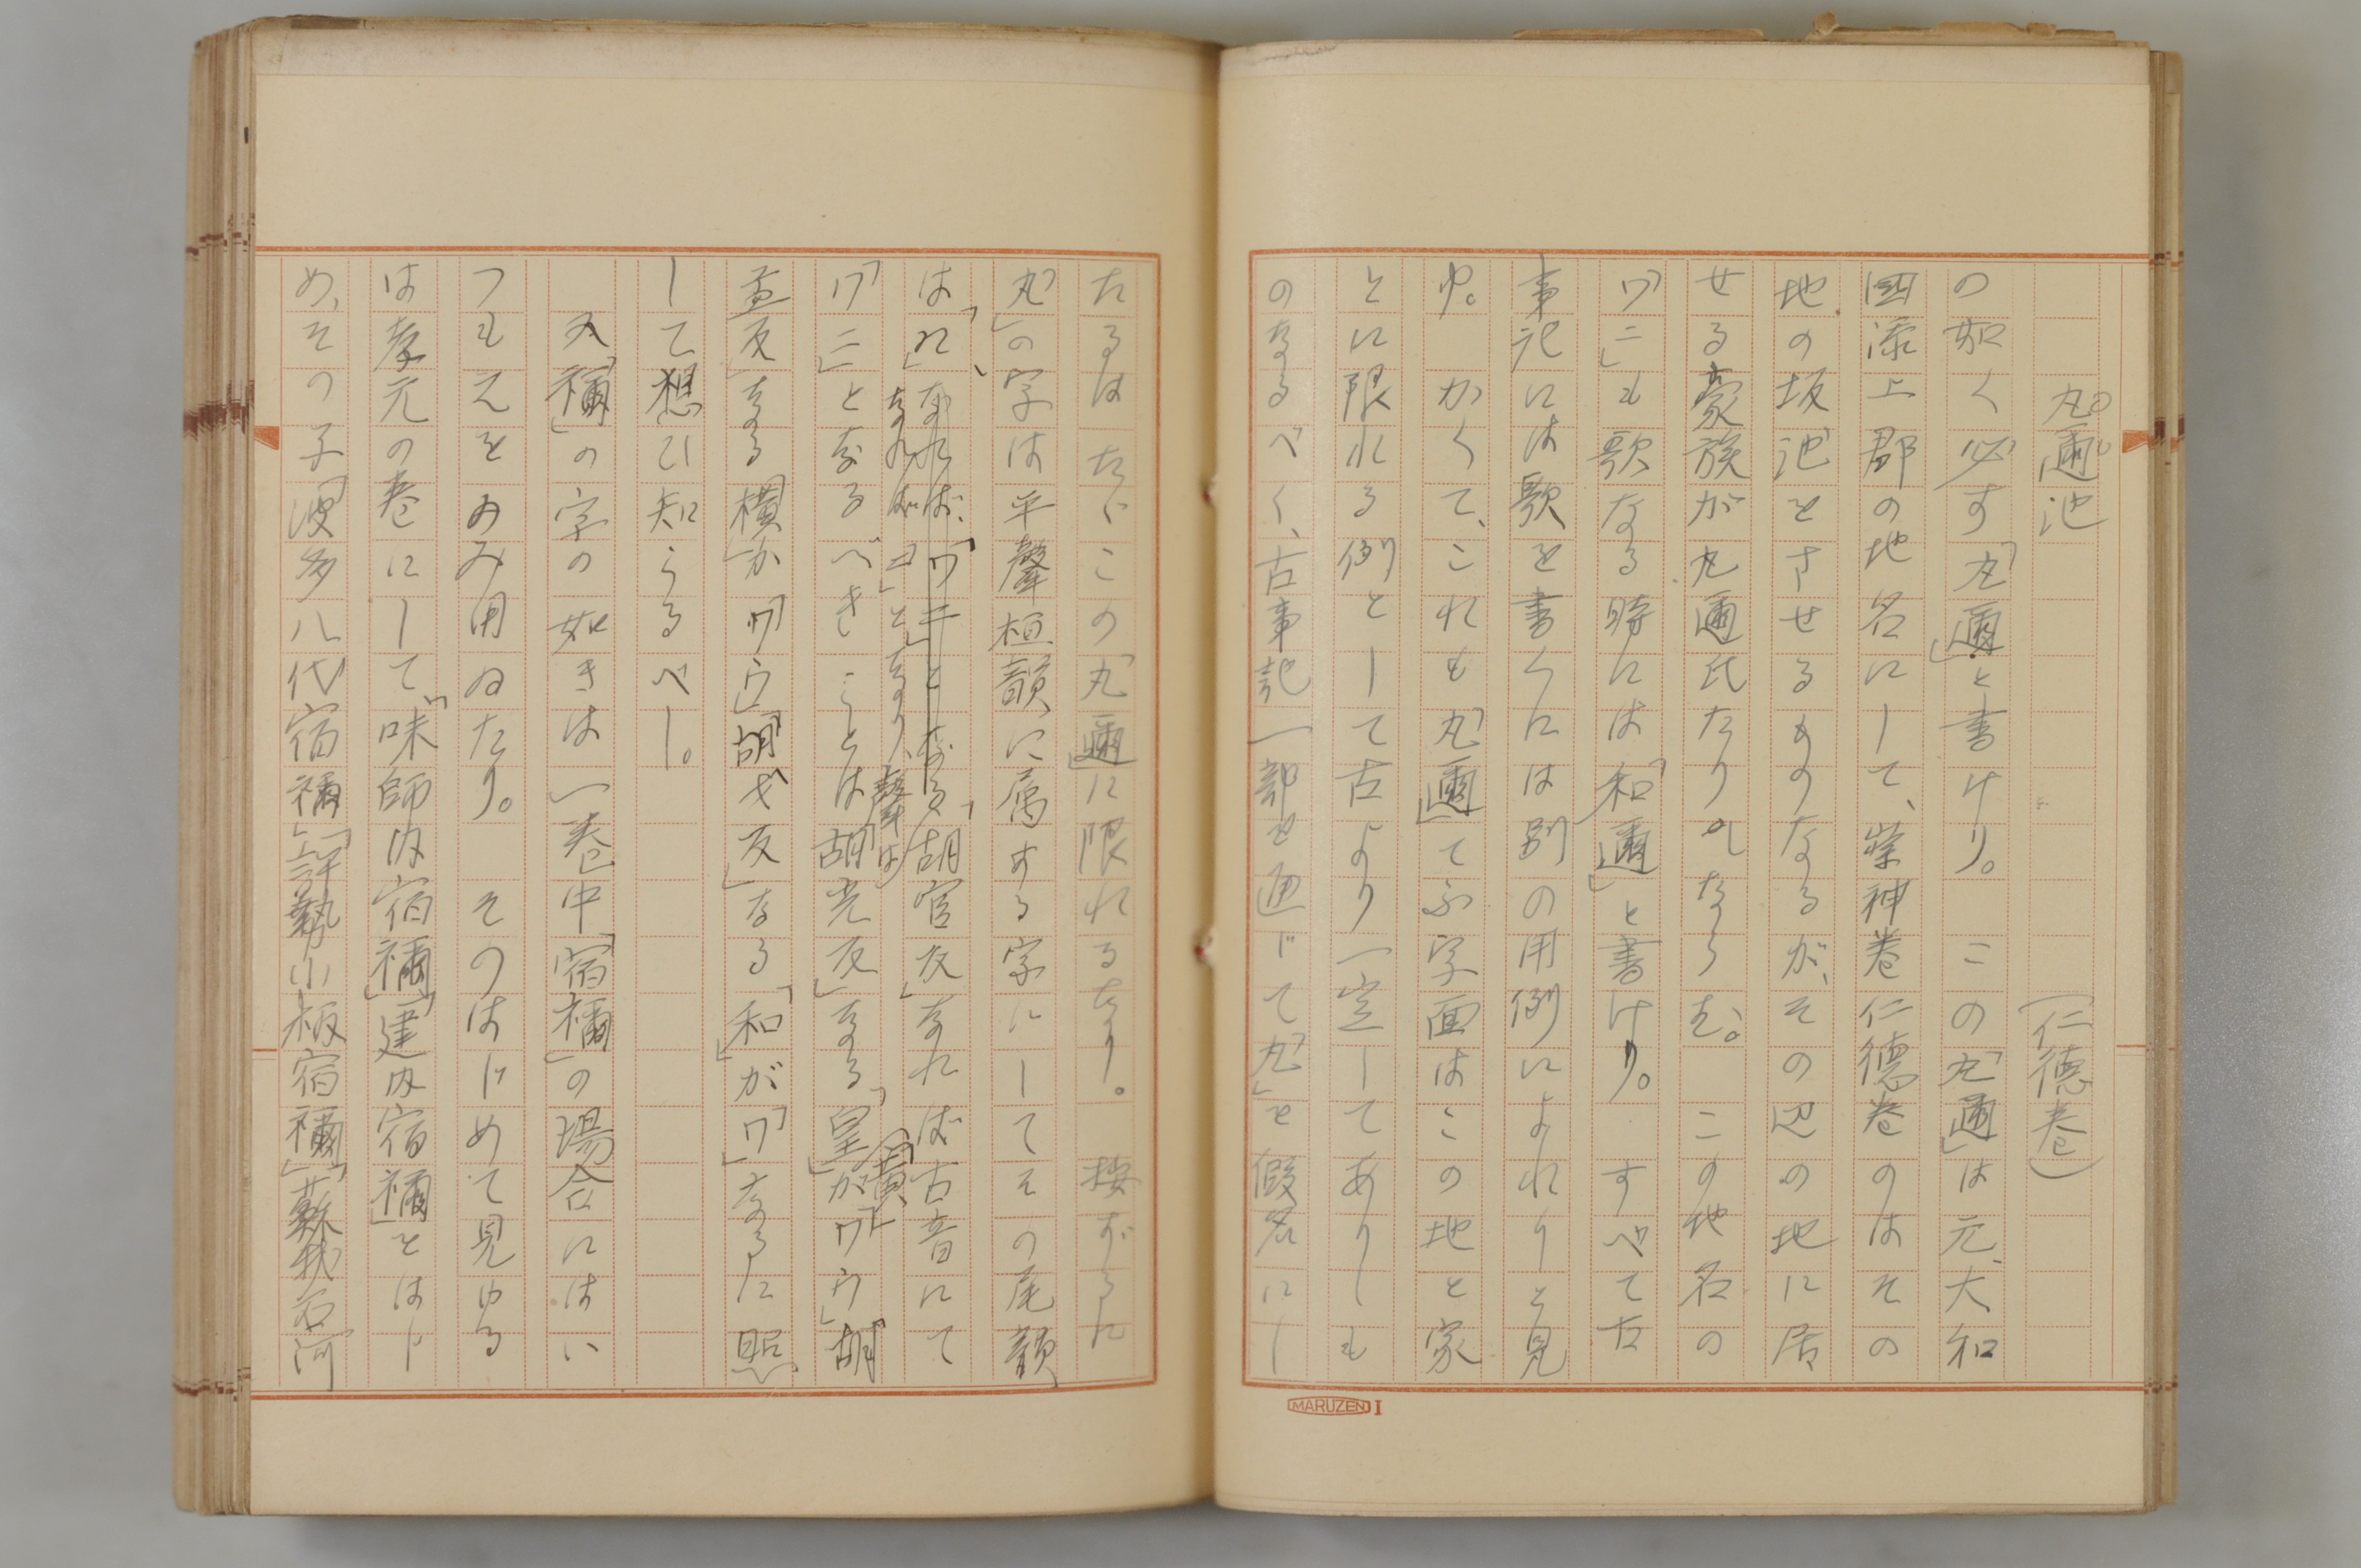 丸邇池　　　　　　　　（仁徳巻）
の如く必す「丸邇」と書けり。　この「丸邇」は元、大和
國添上郡の地名にして、崇神巻仁徳巻のはその
地の坂池をさせるものなるが、その辺の地に居
せる豪族が丸邇氏たりしなら む。　この地名の
「ワニ」も歌なる時には「和邇」と書けり。　すべて古
事記には歌を書くには別の用例によれりと見
ゆ。　かくて、これも「丸邇」てふ字面はこの地と家
とに限れる例として古より一定してありしも
のなるべく、古事記一部を通じて「丸」を假名にし
たるはたゞこの「丸邇」に限れるなり。　按ずるに
「丸」の字は平聲桓韻に属する字にしてその尾韻
は「ん」なれば、「ワニ」となる「胡官反」なれば古音にて
なれば「ヨ」となり、聲は
「ワニ」となるべきことは「胡光反」なる「皇」が「ワウ」「胡
（黄）
盂反」なる「横」が「ワウ」「胡戈反」なる「和」が「ワ」なるに照
して想ひ知らるべし。
又「禰」の字の如きは一巻中「宿禰」の場合にはい
つもこれをのみ用ゐたり。　そのはじめて見ゆる
は孝元の巻にして、「味師内宿禰」「建内宿禰」とはじ
め、その子「波多八代宿禰」「許勢小柄宿禰」「蘇我石河
MARUZEN I